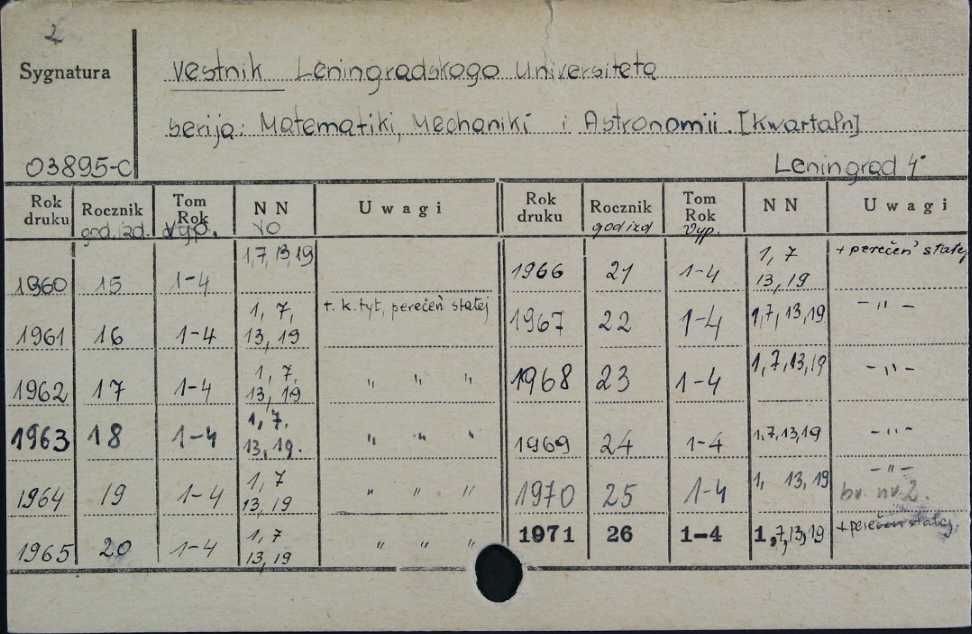 2
Sygnatura
Vestnik Leningradskogo Universiteta
serija: Matematiki, Mechaniki i Astronomii. [kwartaln]
03895-C
Leningrad 4°
Rok druku Rocznik god. izd. Tom Rok Vyp. N N No Uwagi Rok druku Rocznik god izd Tom Rok Vyp. N N Uwagi
1960 15 1-4 1,7,13,19
1961 16 1-4 1, 7, 13, 19 + k. tyt, perečeń statej
1962 17 1-4 1, 7, 13, 19 " " "
1963 18 1-4 1, 7. 13, 19. " " "
1964 19 1-4 1, 7 13, 19 " " "
1965 20 1-4 1, 7 13, 19 " " "
1966 21 1-4 1, 7 13, 19 + perečeń statej
1967 22 1-4 1,7, 13,19 - " -
1968 23 1-4 1,7,13,19 - " -
1969 24 1-4 1,7,13,19 - " -
1970 25 1-4 1, 13,19 - " - br. nr. 2.
1971 26 1-4 1,7,13,19 + perečeń statej